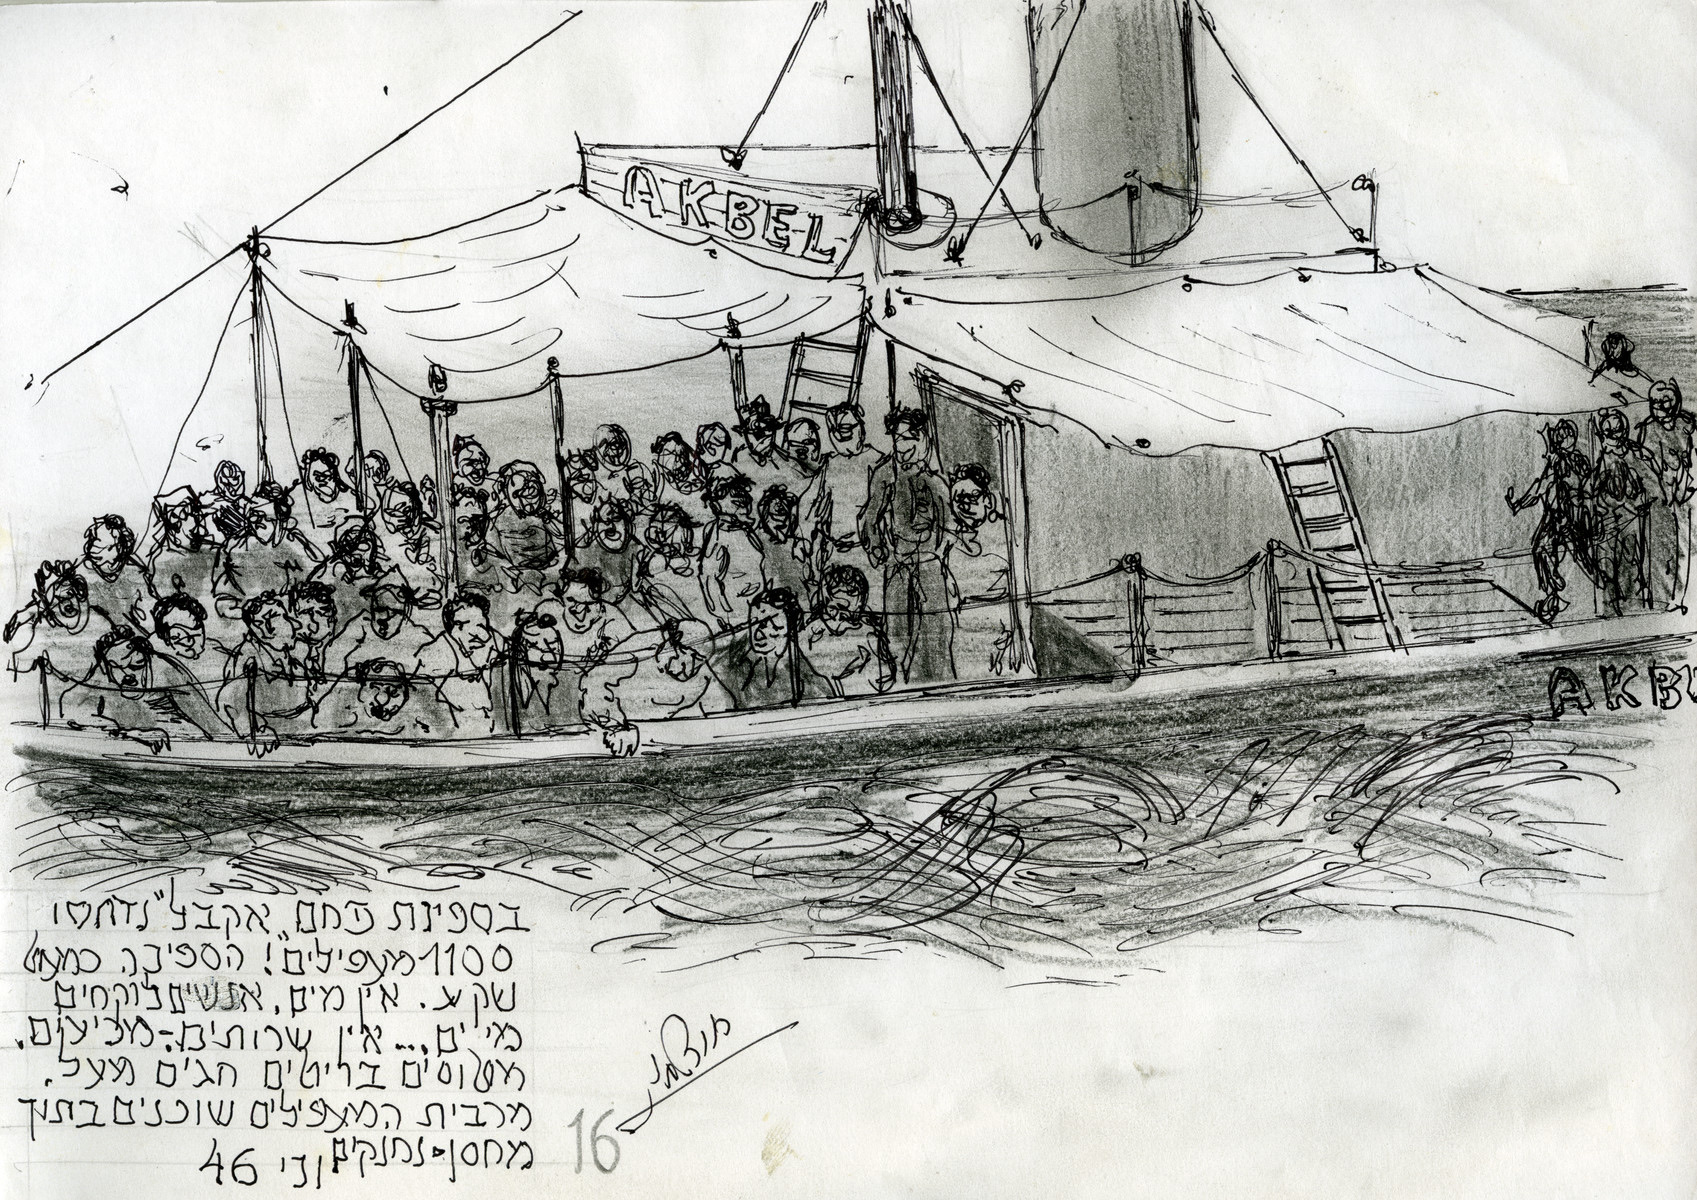 AKBEL
AKB
בספינת פחם "אקבל" נדחסו
1100 מעפילים! הספינה כמעט
שקע. אין מים, אנשים לוקחים
מי ים... אין שרותים - מקיאים.
מטוסים בריטים חגים מעל.
מרבית המעפילים שוכנים בתוך
מחסן - נחנקים
יוני 46
16